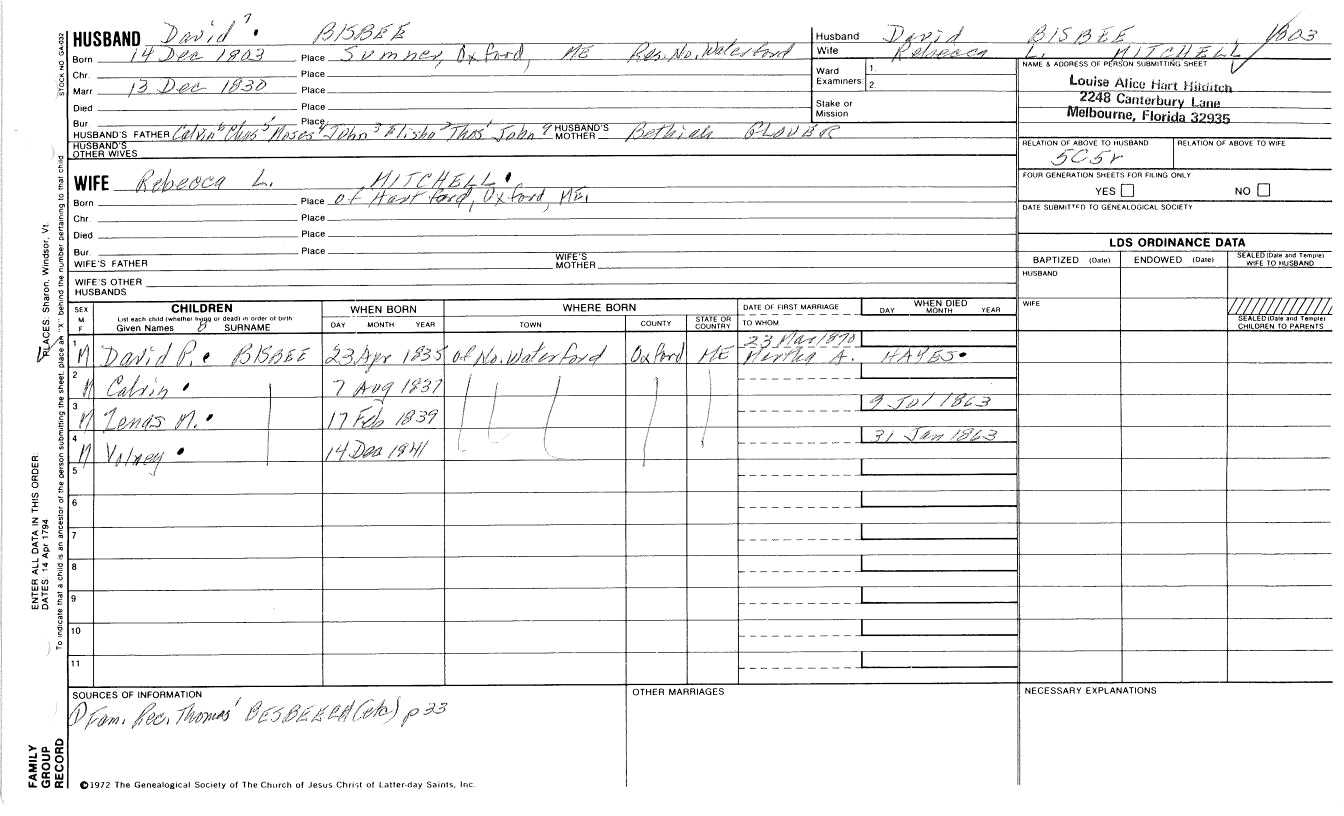 HUSBAND David 7 BISBEE
Born 14 Dec 1803 Place Sumner, Oxford, ME Res. No. Waterford
Chr. Place
Marr 13 Dec 1830 Place
Died Place
Bur Place
HUSBAND'S FATHER Calvin 6 Moses 4 John 3 Elisha 2 Thos 1 John HUSBAND'S MOTHER Bethiah GLOVER
HUSBAND'S OTHER WIVES
WIFE Rebecca L. MITCHELL
Born Place of Hartford, Oxford, ME,
Chr. Place
Died Place
Bur. Place
WIFE'S FATHER WIFE'S MOTHER
WIFE'S OTHER HUSBANDS
Husband David BISBEE 1803
Wife Rebecca L. MITCHELL
Ward 1.
Examiners: 2.
Stake or Mission
NAME & ADDRESS OF PERSON SUBMITTING SHEET
Louise Alice Hart Hilditch
2248 Canterbury Lane
Melbourne, Florida 32935
RELATION OF ABOVE TO HUSBAND RELATION OF ABOVE TO WIFE
5C5r
FOUR GENERATION SHEETS FOR FILING ONLY
YES NO
DATE SUBMITTED TO GENEALOGICAL SOCIETY
LDS ORDINANCE DATA
BAPTIZED (Date) ENDOWED (Date) SEALED (Date and Temple) WIFE TO HUSBAND
HUSBAND
WIFE
SEALED (Date and Temple) CHILDREN TO PARENTS
SEX M. F
CHILDREN
List each child (whether living or dead) in order of birth
Given Names 8 SURNAME
WHEN BORN
DAY MONTH YEAR
WHERE BORN
TOWN COUNTY STATE OR COUNTRY
DATE OF FIRST MARRIAGE
TO WHOM
WHEN DIED
DAY MONTH YEAR
23 Mar 1870
1 M David P. BISBEE 23 Apr 1835 of No. Waterford Oxford ME Martha A. HAYES
2 M Calvin 7 Aug 1837
9 Jul 1863
3 M Zenas M. 17 Feb 1839
31 Jan 1863
4 M Volney 14 Dec 1841
5
6
7
8
9
10
11
SOURCES OF INFORMATION
① Fam. Rec. Thomas 1 BESBEECH (etc) p 33
OTHER MARRIAGES
NECESSARY EXPLANATIONS
©1972 The Genealogical Society of The Church of Jesus Christ of Latter-day Saints, Inc.
STOCK NO GA-032
PLACES Sharon, Windsor, Vt
To indicate that a child is an ancestor of the person submitting the sheet, place an "X" behind the number pertaining to that child
ENTER ALL DATA IN THIS ORDER
DATES 14 Apr 1794
FAMILY GROUP RECORD